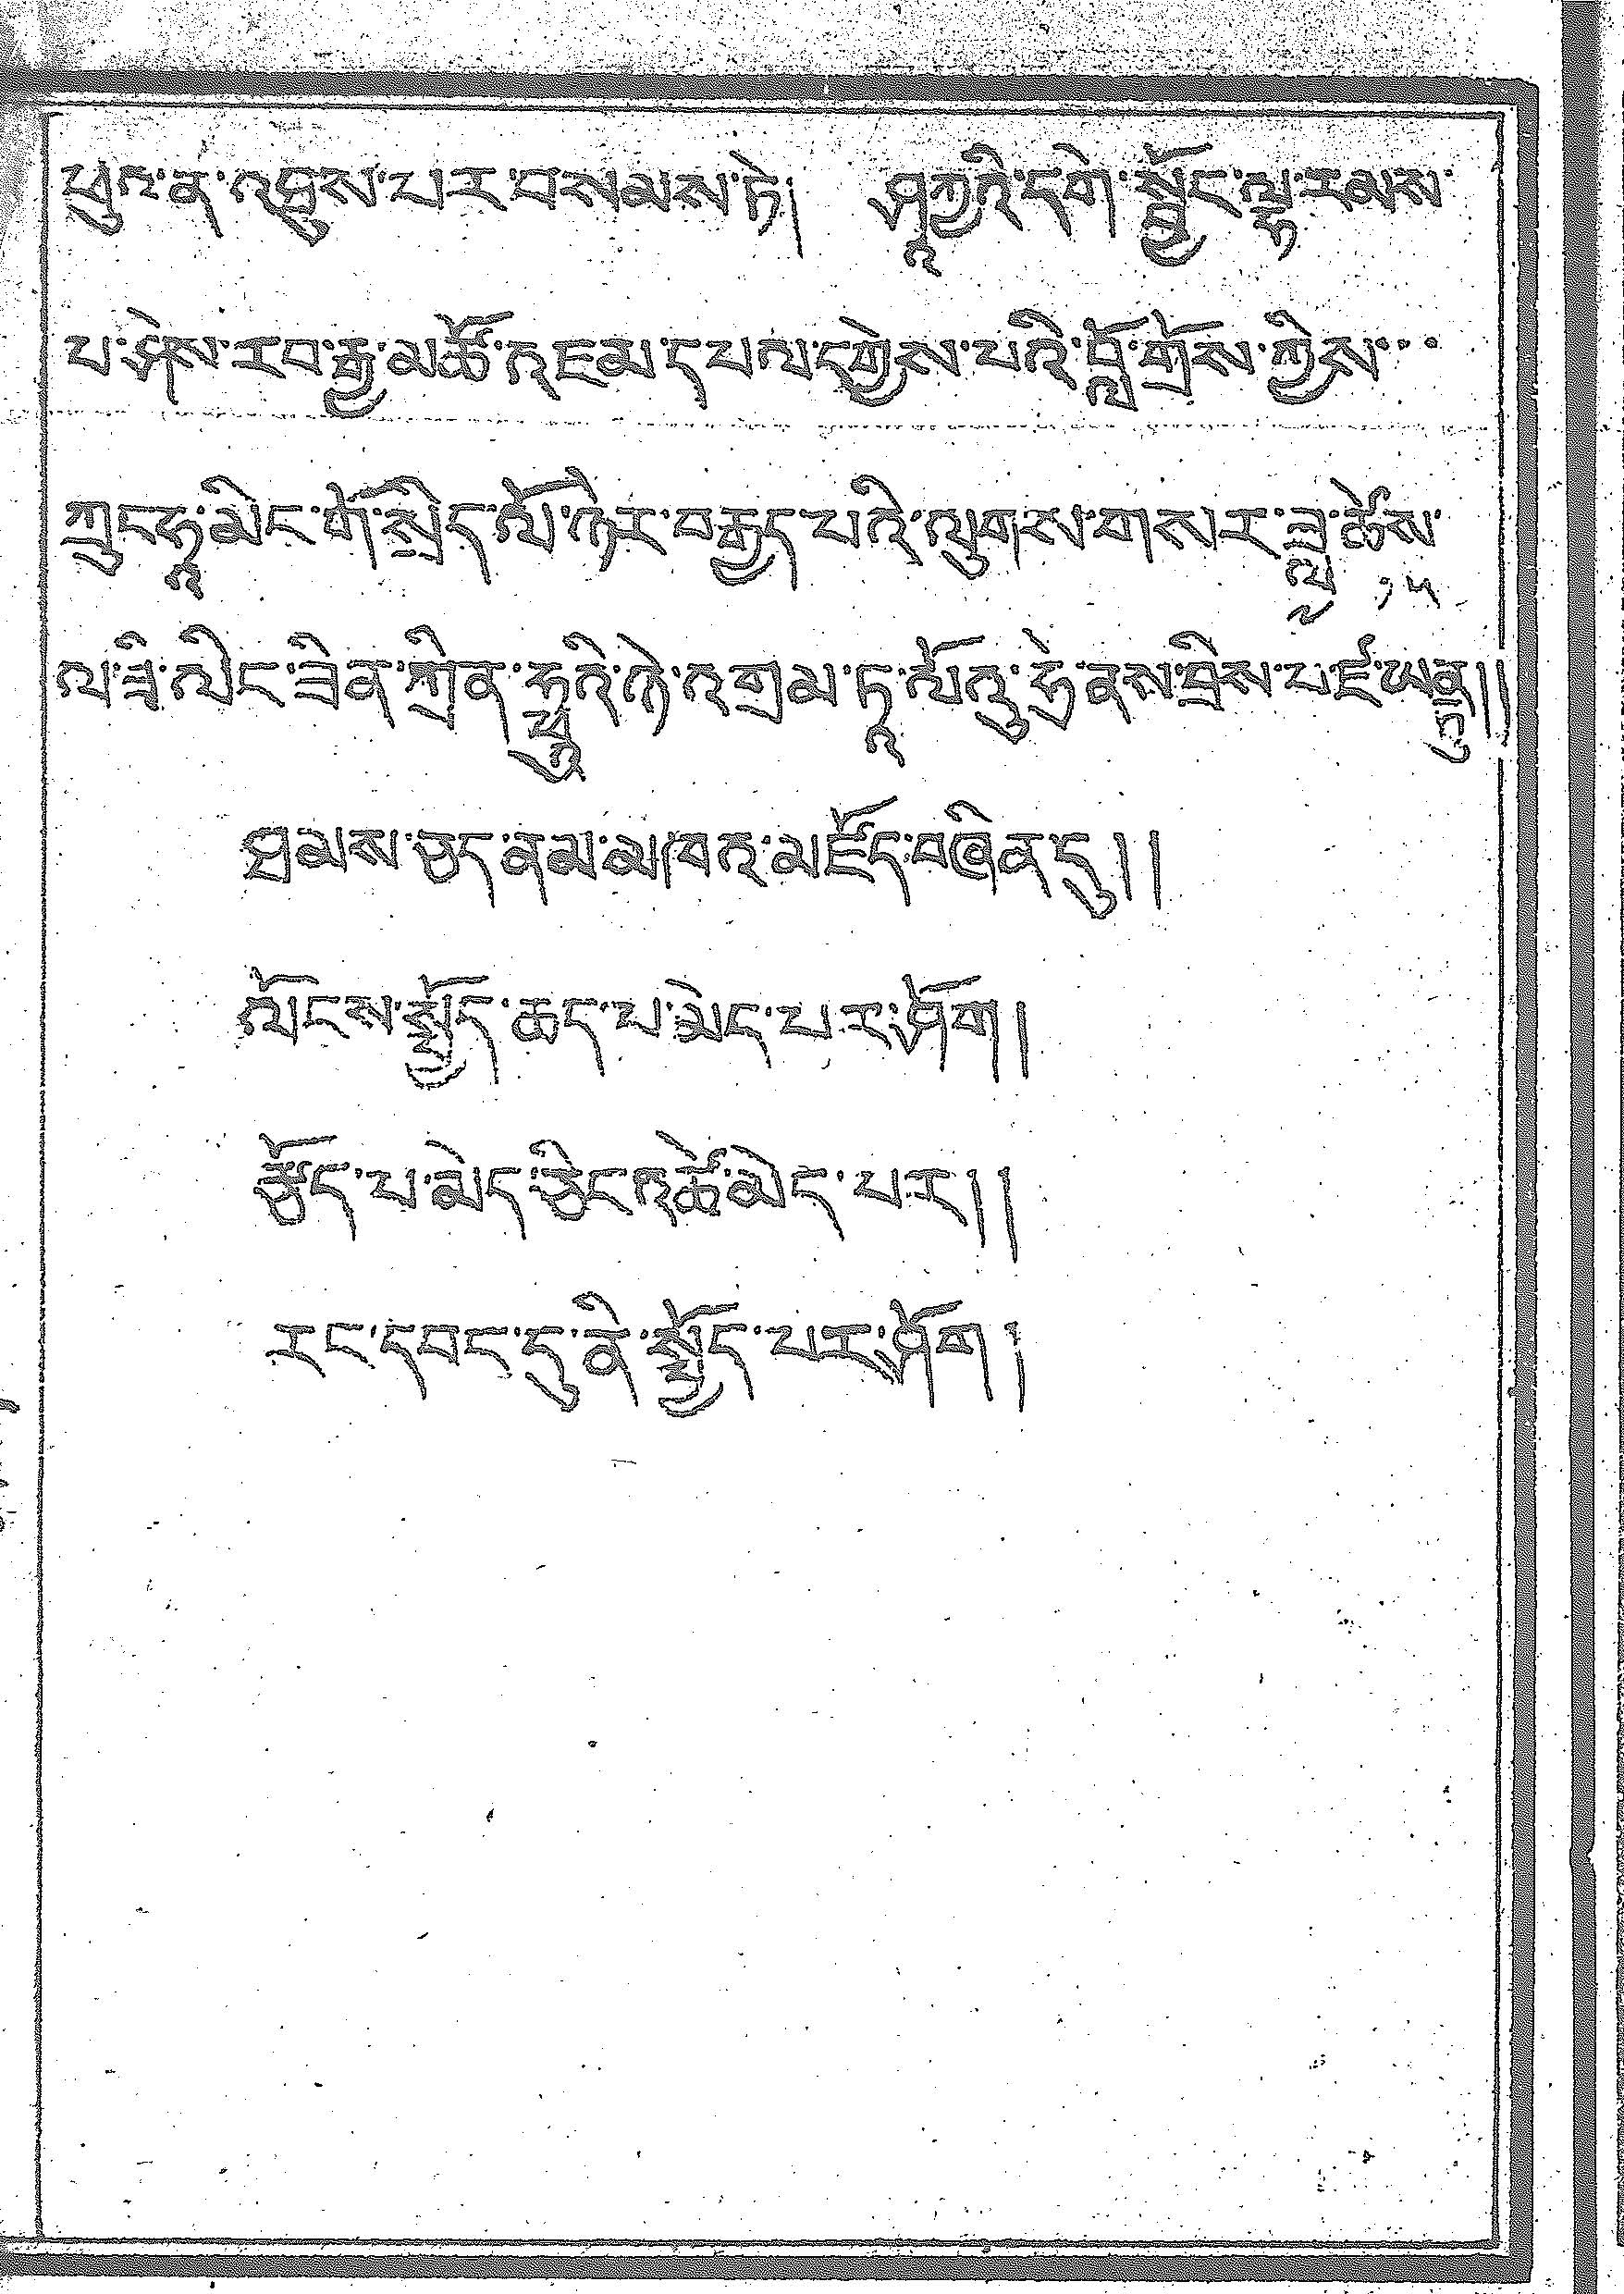 ཕུའ་ན་འདུས་པར་བསམས་ཏེ། ཤཱཀྱའི་དགེ་སློང་ལྷ་རམས་
པ་ཤེས་རབ་རྒྱ་མཚོ་འཇམ་དཔལ་དགྱེས་པའི་བློ་གྲོས་ཀྱིས་...
ཀྲུང་ཧྭ་མིང་གོ་སྲིད་ལོ་ཉེར་བརྒྱད་པའི་ལུགས་གསར་ཟླ་ ཚེས་
༡༥
ལ་ཟི་ལིང་ཟིན་ཀྲིན་ ཉེ་འགྲམ་ ལོའུ་ ནས་བྲིས་པ་ཛ་ཡནྟུ།།
ཐམས་ཅད་ནམ་མཁའ་མཛོད་བཞིན་དུ།།
ལོངས་སྤྱོད་ཆད་པ་མེད་པར་ཤོག།
རྩོད་པ་མེད་ཅིང་འཚེ་མེད་པར།།
རང་དབང་དུ་ནི་སྤྱོད་པར་ཤོག།